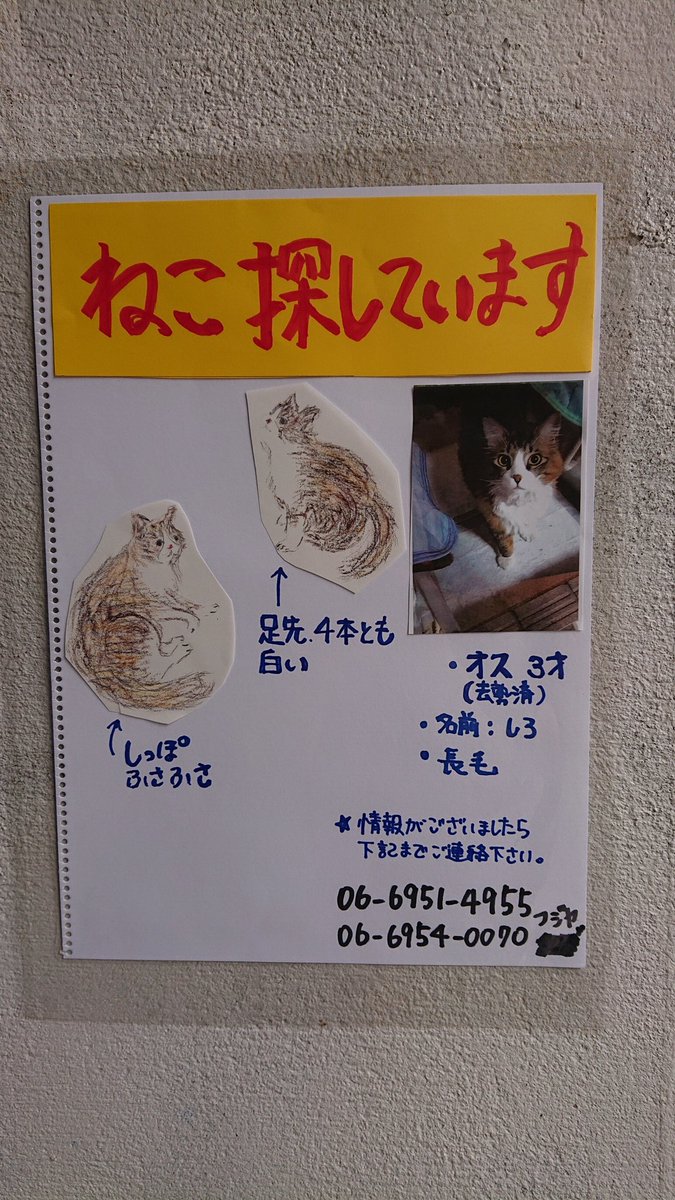 ねこ 探しています
足先、4本とも
白い
しっぽ
ふさふさ
・オス 3才
(去勢済)
・名前：しろ
・長毛
★情報がございましたら
下記までご連絡下さい。
06-6951-4955
フジヤ
06-6954-0070